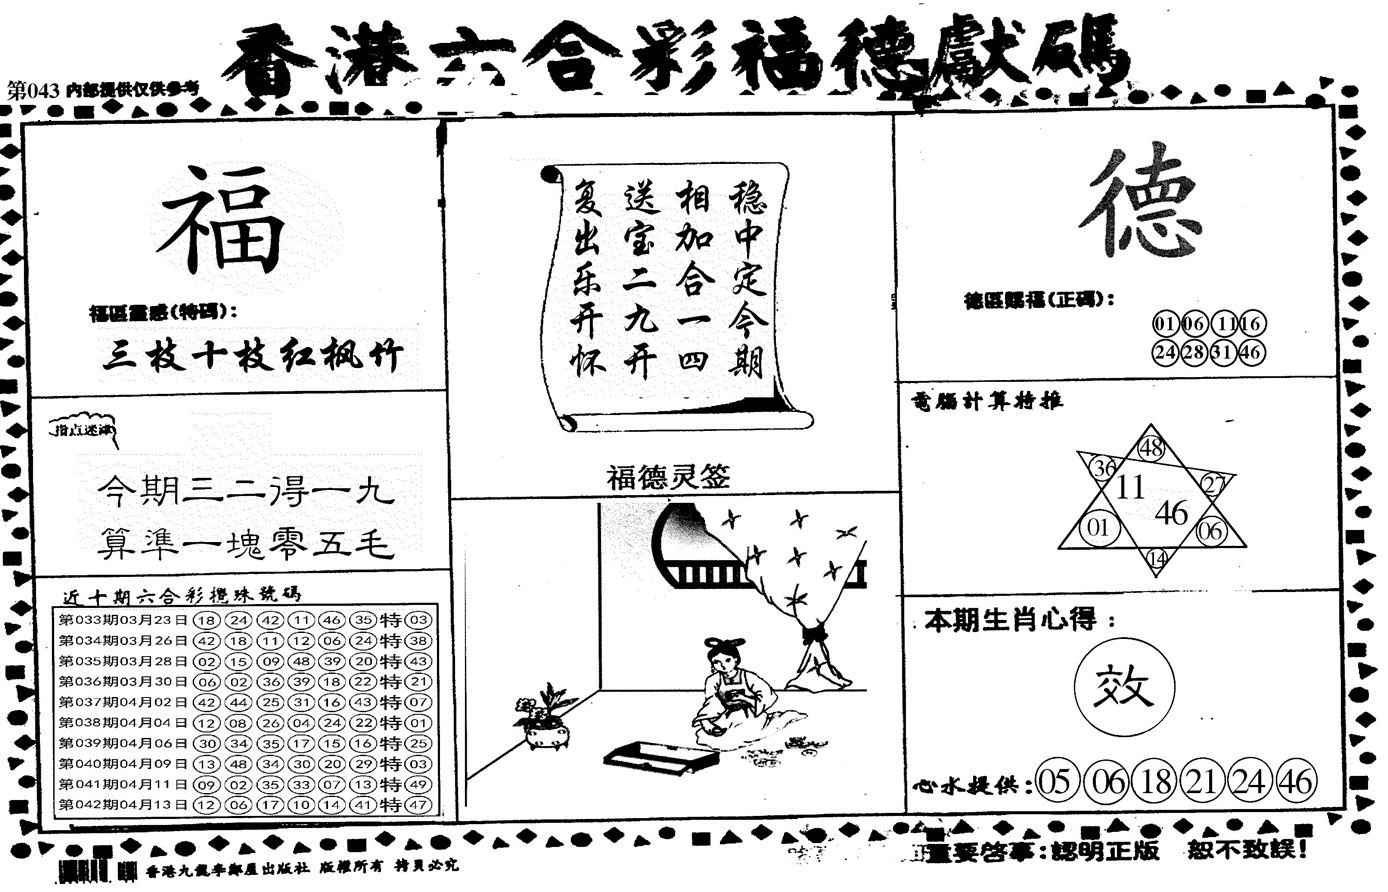 香港六合彩福德獻碼
第043 内部提供仅供参考
福
福區靈感(特碼):
三枝十枝红枫竹
指点迷津
今期三二得一九
算準一塊零五毛
近十期六合彩攪珠號碼
第033期03月23日 18 24 42 11 46 35 特 03
第034期03月26日 42 18 11 12 06 24 特 38
第035期03月28日 02 15 09 48 39 20 特 43
第036期03月30日 06 02 36 39 18 22 特 21
第037期04月02日 42 44 25 31 16 43 特 07
第038期04月04日 12 08 26 04 24 22 特 01
第039期04月06日 30 34 35 17 15 16 特 25
第040期04月09日 13 48 34 30 20 29 特 03
第041期04月11日 09 02 35 33 07 13 特 49
第042期04月13日 12 06 17 10 14 41 特 47
稳中定今期
相加合一四
送宝二九开
复出乐开怀
福德灵签
德
德區賜福(正碼):
01 06 11 16
24 28 31 46
電腦計算特推
48
36
27
11
46
01
06
14
本期生肖心得:
效
心水提供: 05 06 18 21 24 46
香港九龍李鄭屋出版社 版權所有 拷貝必究
重要啓事:認明正版 恕不致誤!